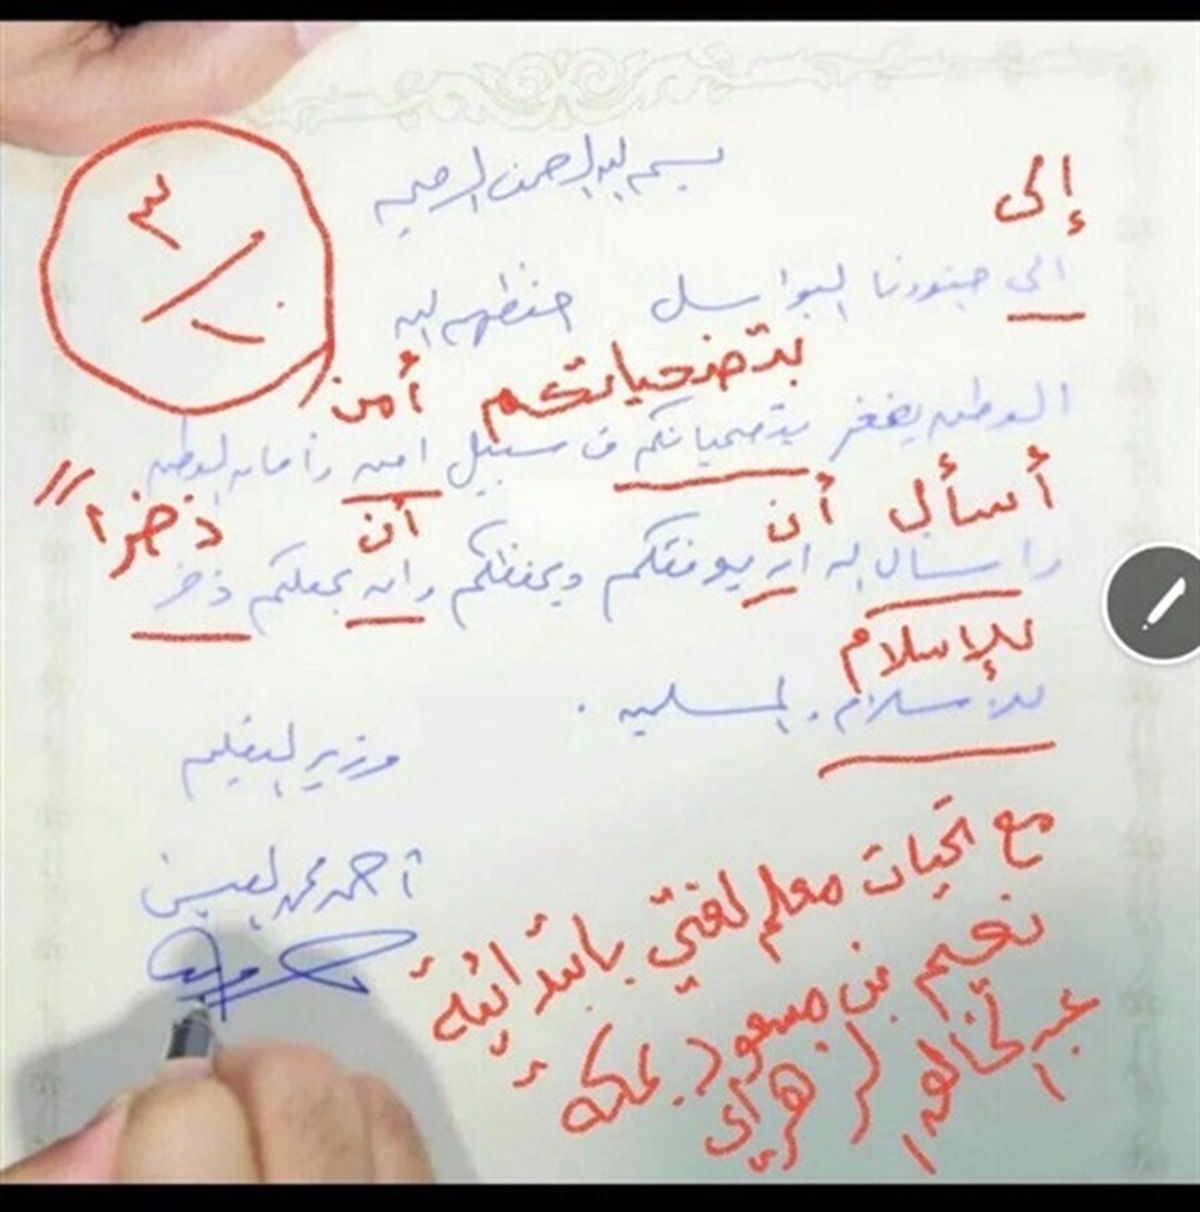 بسم الله الرحمن الرحيم
إلى
الى جنودنا البواسل حفظهم الله
٣
١٠
بتضحياتكم أمن
الوطن يفخر بتضحياتكم في سبيل امن وأمان الوطن
أسأل أن أن ذخرا"
واسال الله ان يوفقكم ويحفظكم وان يجعلكم ذخر
للإسلام
للاسلام والمسلمين .
وزير التعليم
أحمد محمد العيسى
مع تحيات معلم لغتي بابتدائية
نعيم بن مسعود بمكة
عبدالخالق الزهراني